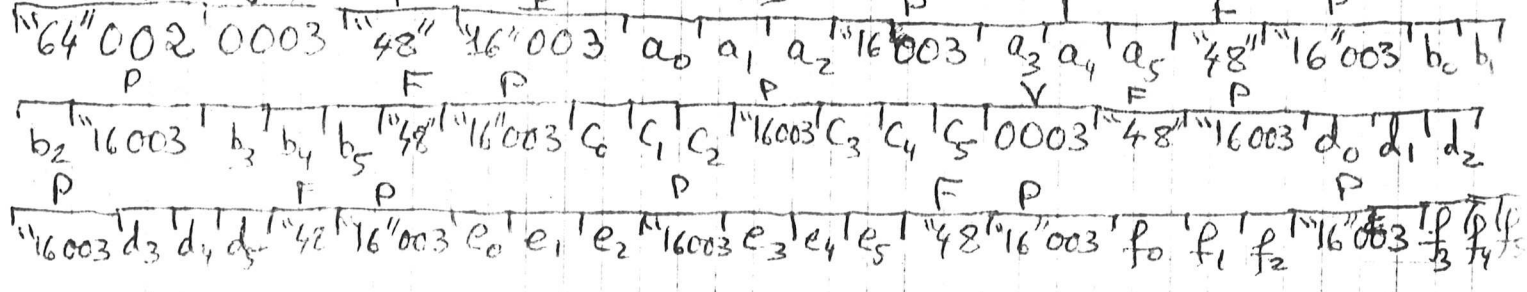 "64"002 0003 "48" "16"003 a₀ a₁ a₂ "16"003 a₃ a₄ a₅ "48" "16"003 b₀ b₁
P F P P V F P
b₂ "16003 b₃ b₄ b₅ "48" "16"003 c₀ c₁ c₂ "16003 c₃ c₄ c₅ 0003 "48" "16003 d₀ d₁ d₂
P F P P F P P
"16003 d₃ d₄ d₅ "48 "16"003 e₀ e₁ e₂ "16003 e₃ e₄ e₅ "48 "16"003 f₀ f₁ f₂ "16"003 f₃ f₄